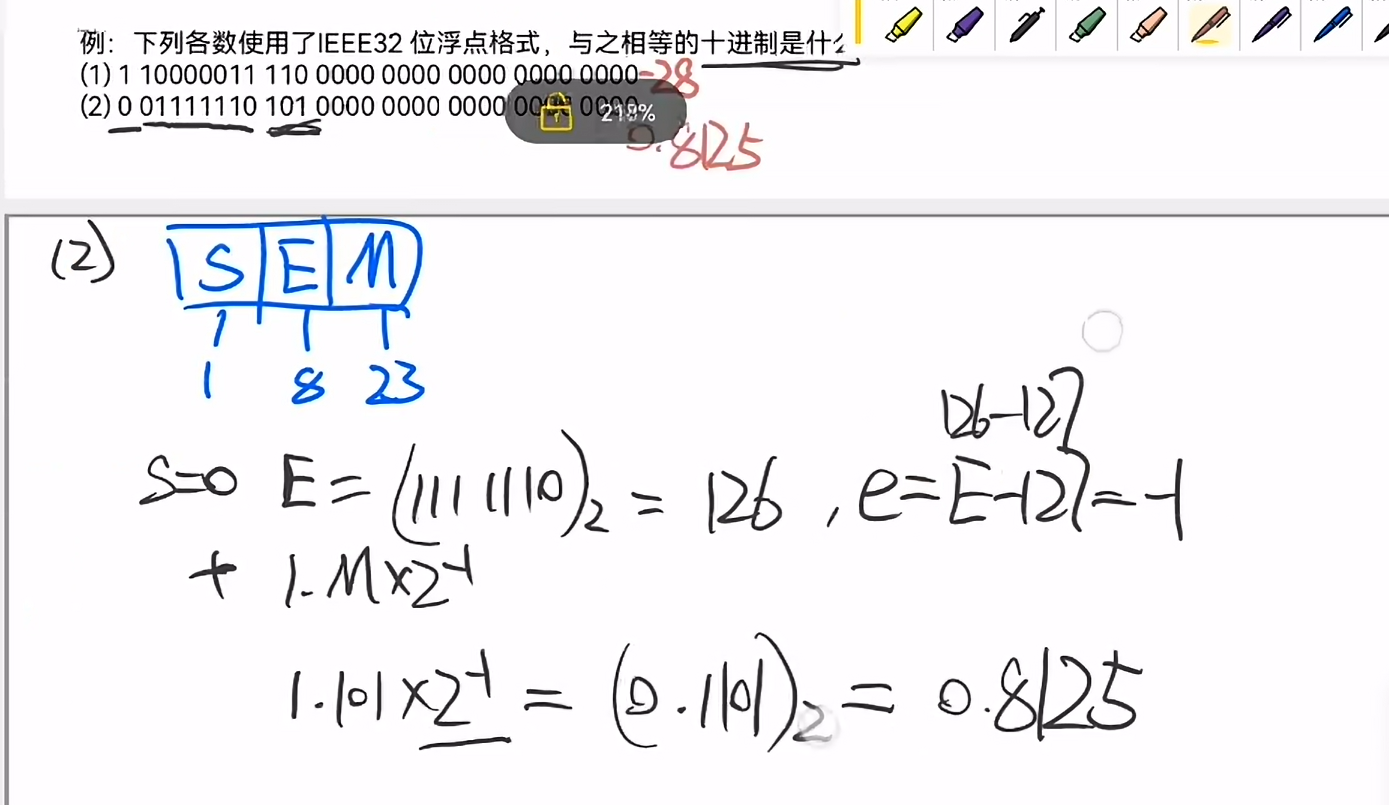 例：下列各数使用了IEEE32 位浮点格式，与之相等的十进制是什
(1) 1 10000011 110 0000 0000 0000 0000 0000 -28
(2) 0 01111110 101 0000 0000 0000
219%
0.8125
(2) S E M
1 8 23
126-127
S=0 E=(1111110)2=126, e=E-127=-1
+ 1.M×2-1
1.101×2-1=(0.1101)2=0.8125